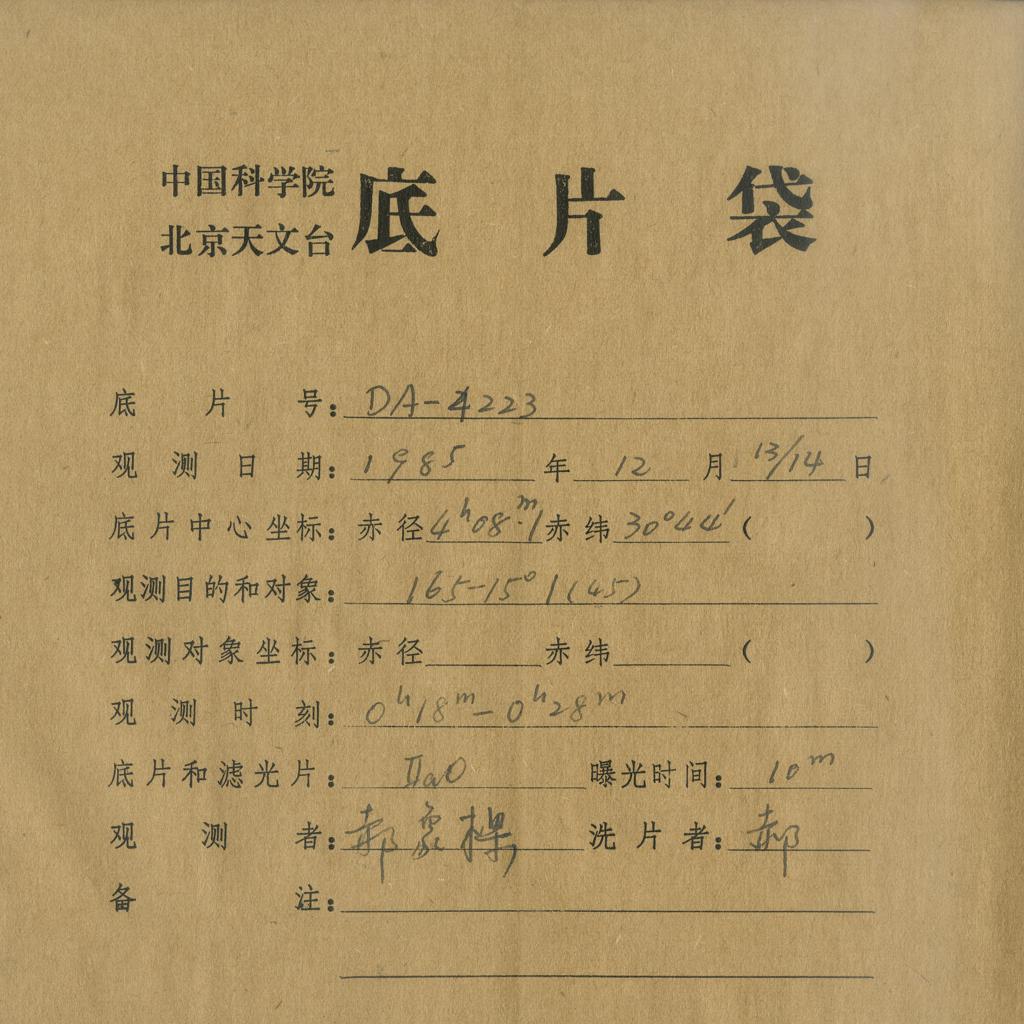 中国科学院
北京天文台 底片袋
底片号：DA-4223
观测日期：1985年12月13/14日
底片中心坐标：赤径4ʰ08ᵐ.1赤纬30°44′（ ）
观测目的和对象：165-15°1(45)
观测对象坐标：赤径 赤纬 （ ）
观测时刻：0ʰ18ᵐ-0ʰ28ᵐ
底片和滤光片：ⅡaO 曝光时间：10ᵐ
观测者：郝象樑 洗片者：郝
备注：